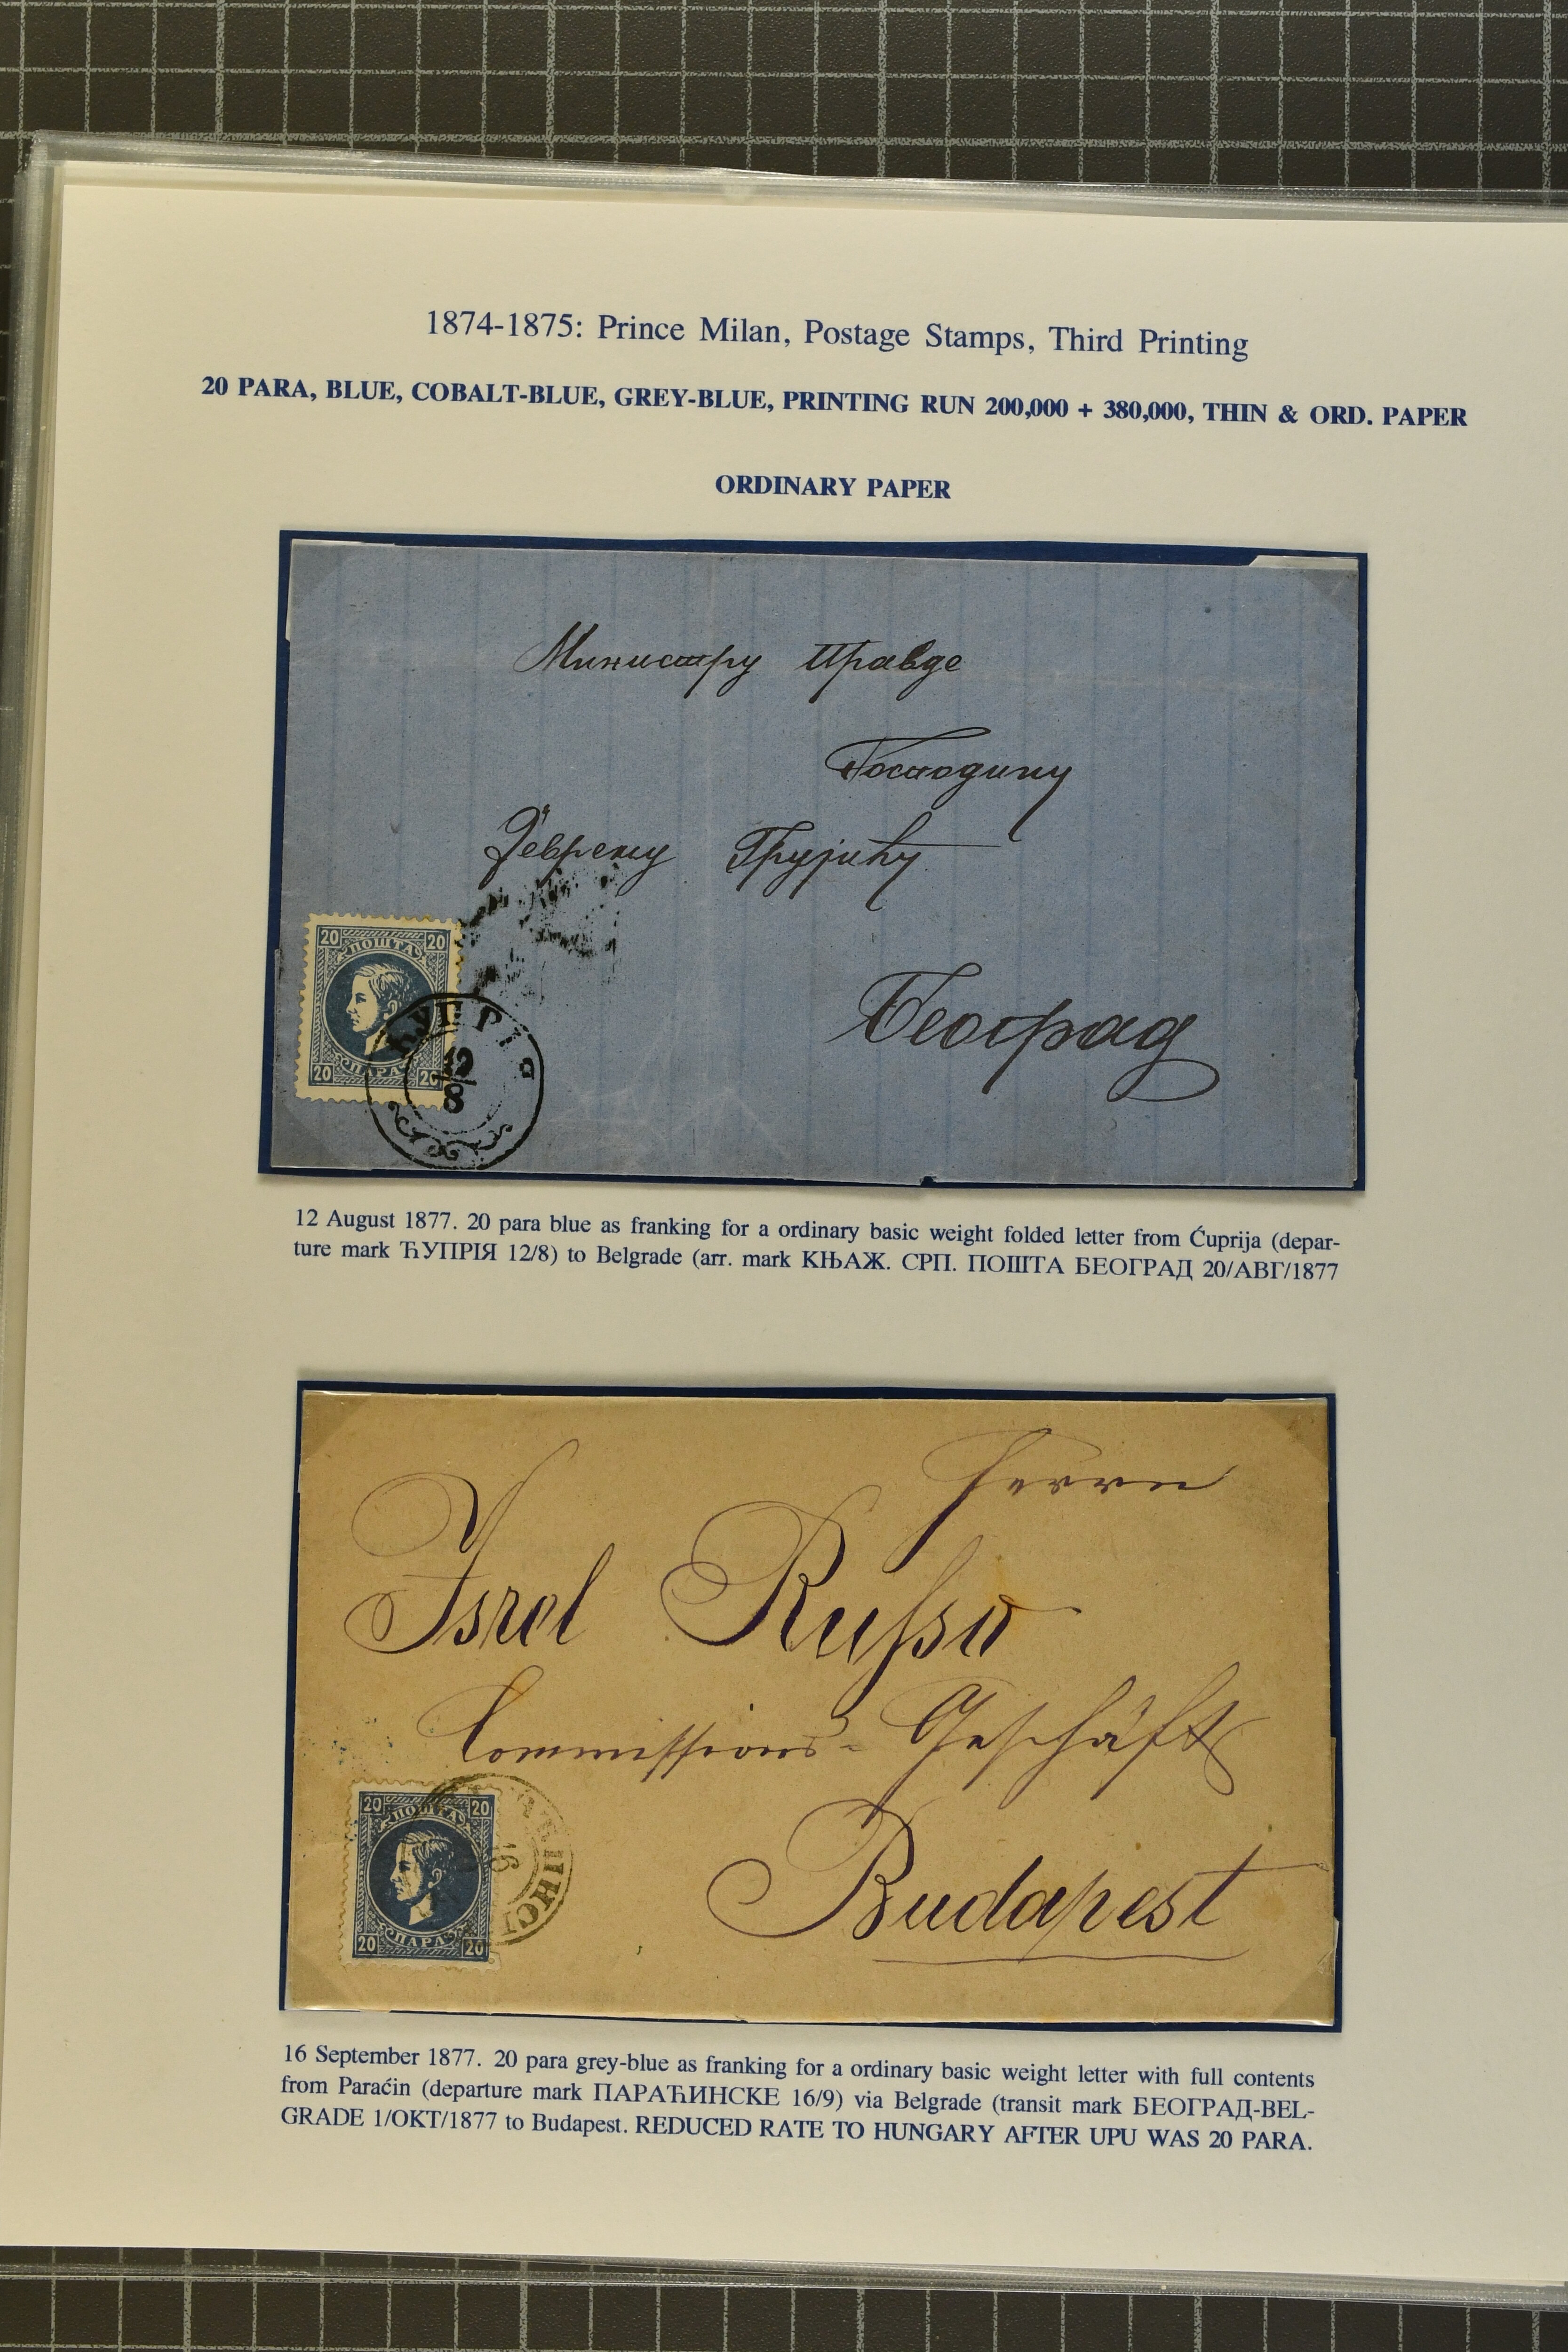 1874-1875: Prince Milan, Postage Stamps, Third Printing
20 PARA, BLUE, COBALT-BLUE, GREY-BLUE, PRINTING RUN 200,000 + 380,000, THIN & ORD. PAPER
ORDINARY PAPER
Министру Правде
Господину
Јеврему Грујићу
Београд
20 20
ПОШТА
ПАРА
20 20
ЋУПРІЯ
12
8
12 August 1877. 20 para blue as franking for a ordinary basic weight folded letter from Ćuprija (depar-
ture mark ЋУПРІЯ 12/8) to Belgrade (arr. mark КЊАЖ. СРП. ПОШТА БЕОГРАД 20/АВГ/1877
Herrn
Isrel Russo
Commissions-Geschäft
Budapest
20 20
ПОШТА
ПАРА
20 20
16 September 1877. 20 para grey-blue as franking for a ordinary basic weight letter with full contents
from Paraćin (departure mark ПАРАЋИНСКЕ 16/9) via Belgrade (transit mark БЕОГРАД-BEL-
GRADE 1/OKT/1877 to Budapest. REDUCED RATE TO HUNGARY AFTER UPU WAS 20 PARA.